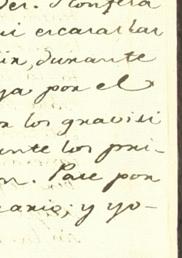 der. Confesa
ni escarallar
in, durante
ya por el
n los gravisi
ante los pri-
n. Pase por
cario; y yo-